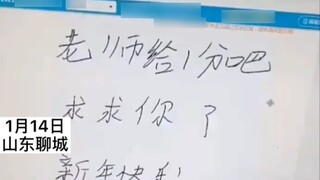 老师给1分吧
求求你了
1月14日
山东聊城
新年快乐